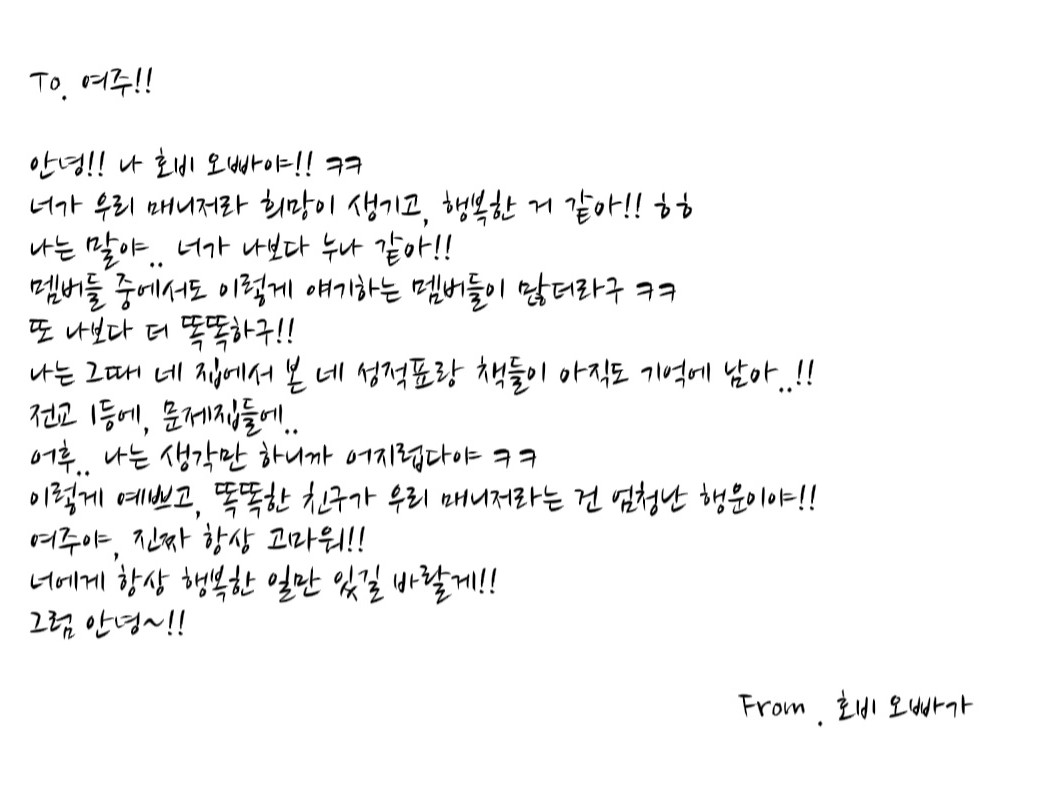 To. 여주!!
안녕!! 나 호비 오빠야!! ㅋㅋ
너가 우리 매니저라 희망이 생기고, 행복한 거 같아!! ㅎㅎ
나는 말야.. 너가 나보다 누나 같아!!
멤버들 중에서도 이렇게 얘기하는 멤버들이 많더라구 ㅋㅋ
또 나보다 더 똑똑하구!!
나는 그때 네 집에서 본 네 성적표랑 책들이 아직도 기억에 남아..!!
전교 1등에, 문제집들에..
어후.. 나는 생각만 하니까 어지럽다야 ㅋㅋ
이렇게 예쁘고, 똑똑한 친구가 우리 매니저라는 건 엄청난 행운이야!!
여주야, 진짜 항상 고마워!!
너에게 항상 행복한 일만 있길 바랄게!!
그럼 안녕~!!
From. 호비 오빠가